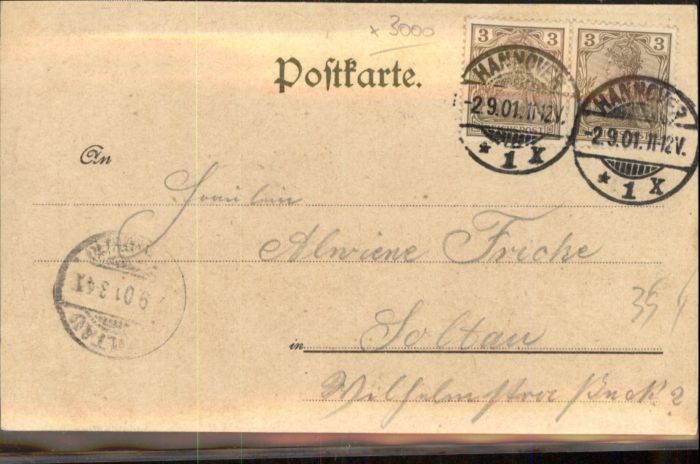 x 3000
3 3 3 3
Postkarte.
HANNOVER
-2.9.01.11-12V.
* 1 X
HANNOVER
-2.9.01.11-12V.
* 1 X
An
Fräulein
Alwiene Fricke
SOLTAU
9.01.3-4
35
in Soltau
Wilhelmstrasse